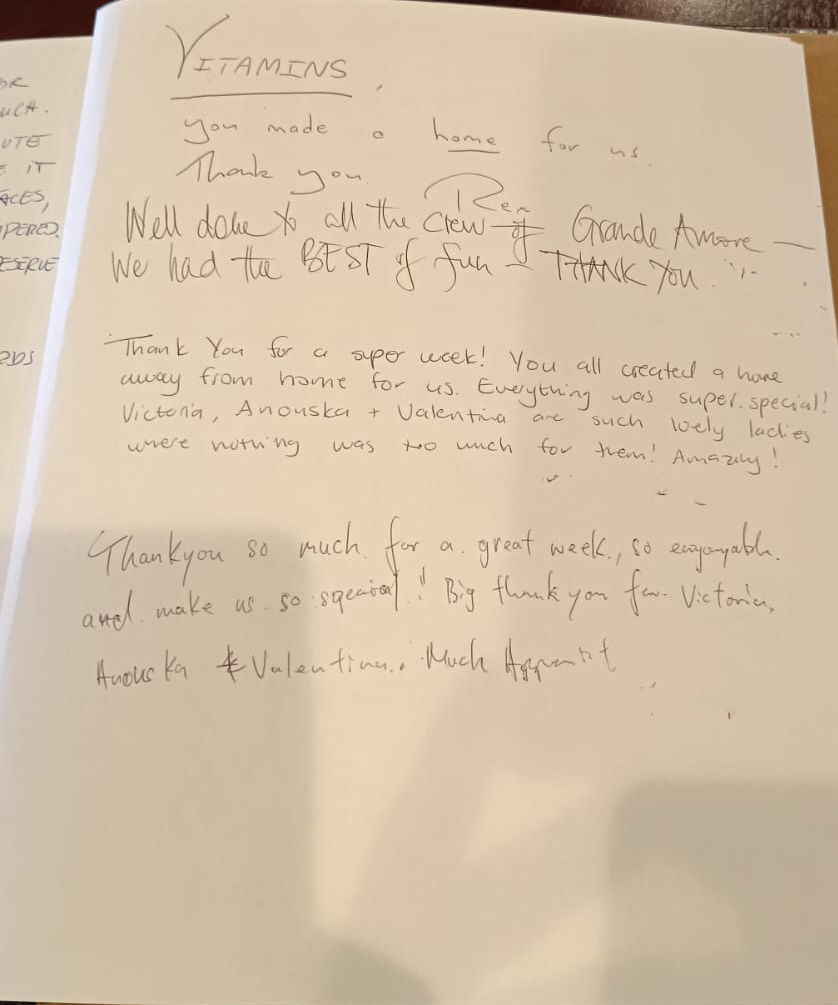 OR
UCH.
UTE
IT
ACES,
PERED.
ESERVE
RDS
VITAMINS,
you made a home for us.
Thank you.
Rex
Well done to all the crew of Grande Amore —
We had the BEST of fun – THANK YOU
Thank You for a super week! You all created a home
away from home for us. Everything was super special!
Victoria, Anouska + Valentina are such lovely ladies
where nothing was too much for them! Amazing!
Thankyou so much for a great week, so
and make us so ! Big thank you for Victoria,
Anouska & Valentina.. Much